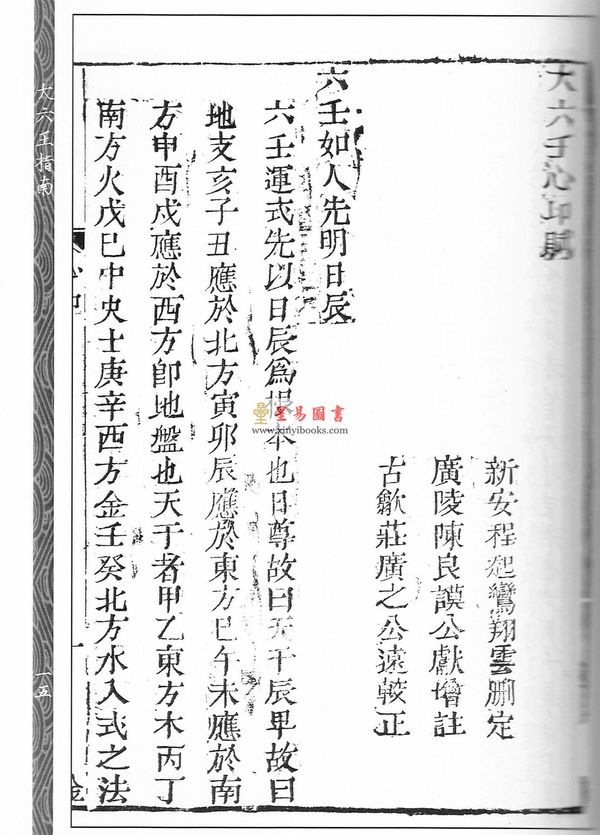 大六壬心印賦
新安程起鸞翔雲刪定
廣陵陳良謨公獻增註
古歙莊廣之公遠較正
六壬如人先明日辰
六壬運式先以日辰為根本也日尊故曰天干辰卑故曰
地支亥子丑應於北方寅卯辰應於東方巳午未應於南
方申酉戍應於西方卽地盤也天于者甲乙東方木丙丁
南方火戊巳中央士庚辛西方金壬癸北方水入式之法
星易圖書
www.xinyibooks.com
大六壬指南
一五